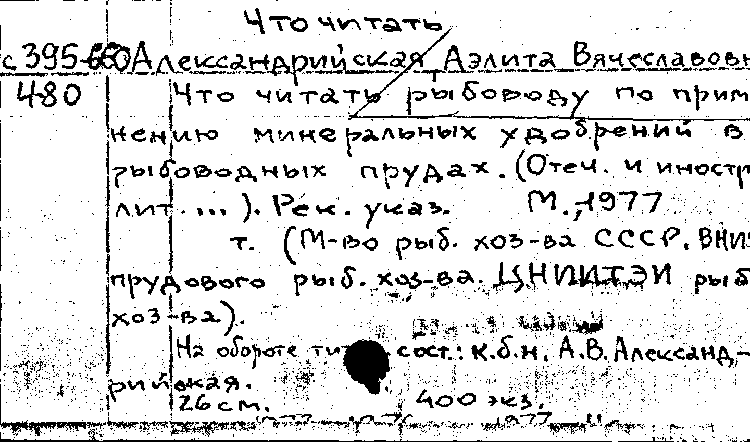 Что читать
с 395-660 Александрийская Аэлита Вячеславовн
480 Что читать рыбоводу по прим
нению минеральных удобрений в
рыбоводных прудах. (Отеч. и иностр
лит. ...). Рек. указ. М., 1977
т. (М-во рыб. хоз-ва СССР. ВНИ
прудового рыб. хоз-ва. ЦНИИТЭИ рыб
хоз-ва).
На обороте тит сост.: к.б.н. А.В. Александ-
рийская.
26 см. 400 экз.